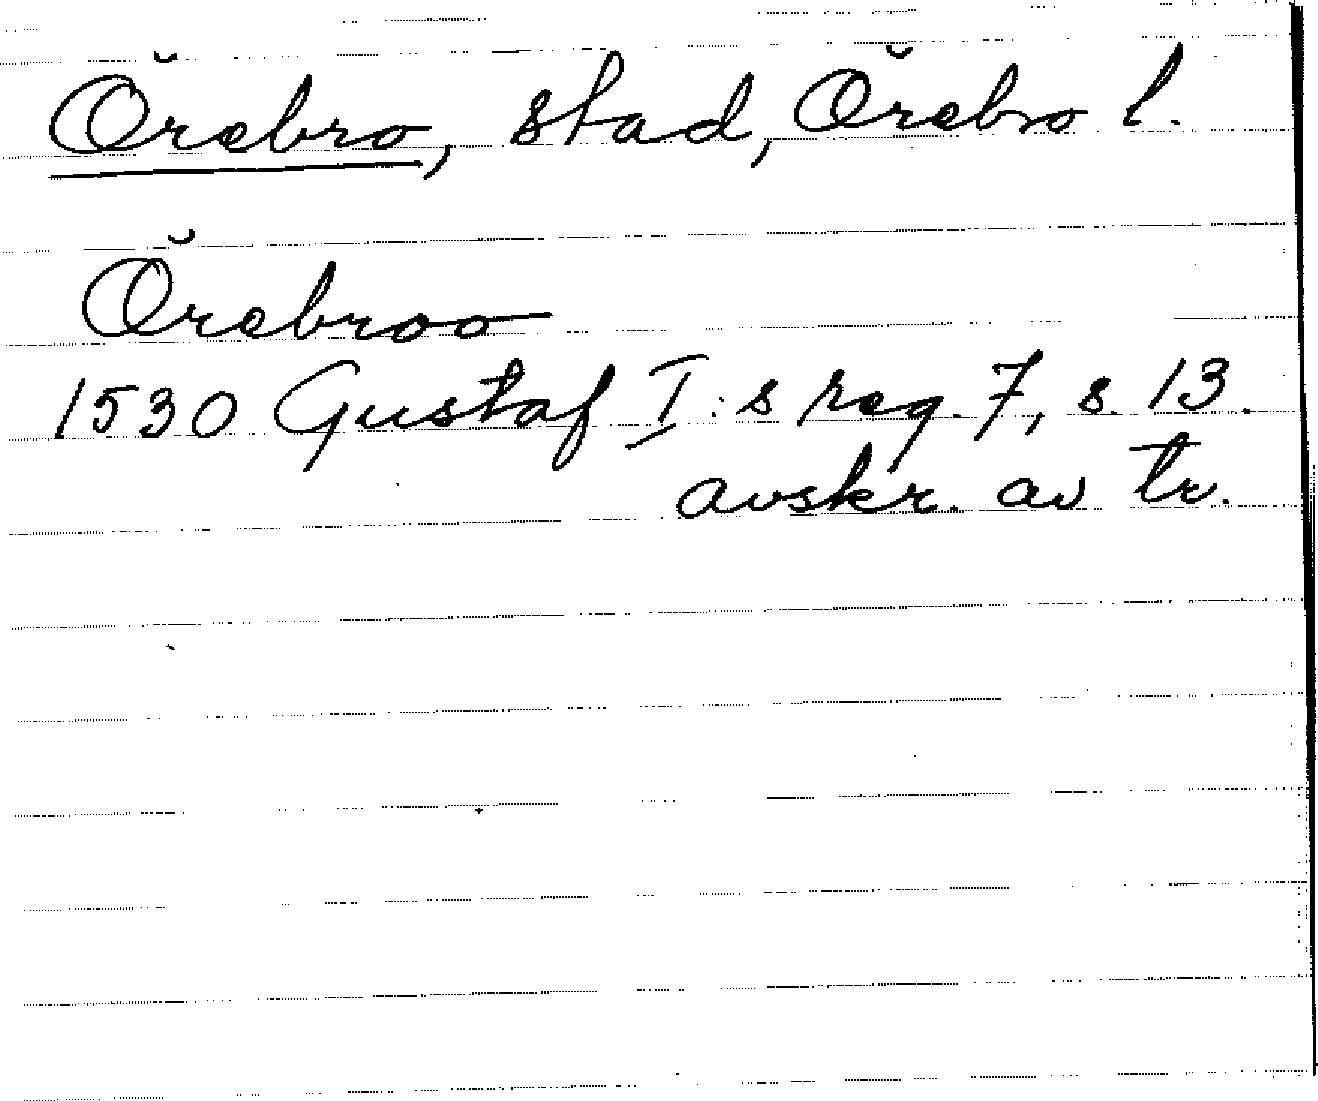 Örebro, stad, Örebro l.
Örebroo
1530 Gustaf I:s reg. 7, s. 13.
avskr. av tr.